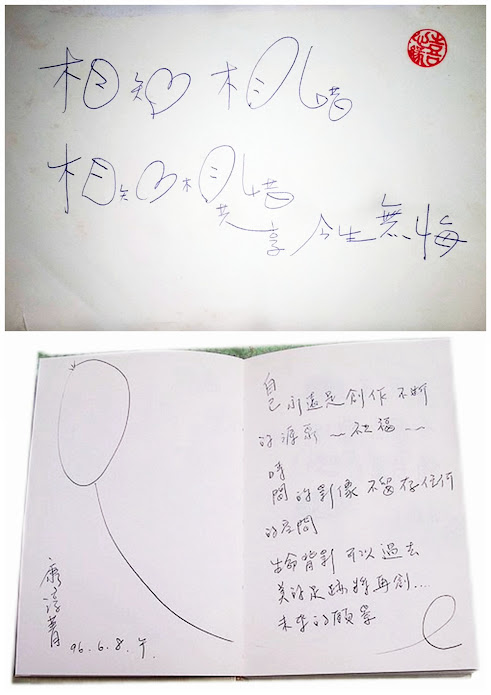 相知相惜
相知相惜
共享今生無悔
自己永遠是創作不斷
的源泉~祝福~
時
間的影像不留存任何
的空間
生命背影可以過去
美的足跡將再創....
未來的願景
96.6.8.午.